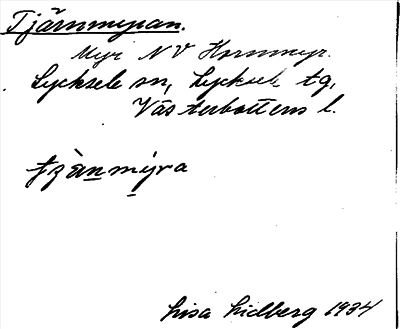 Tjärnmyran.
Myr NV Hornmyr.
Lycksele sn, Lycksele tg,
Västerbottens l.
Lisa Lidberg 1934